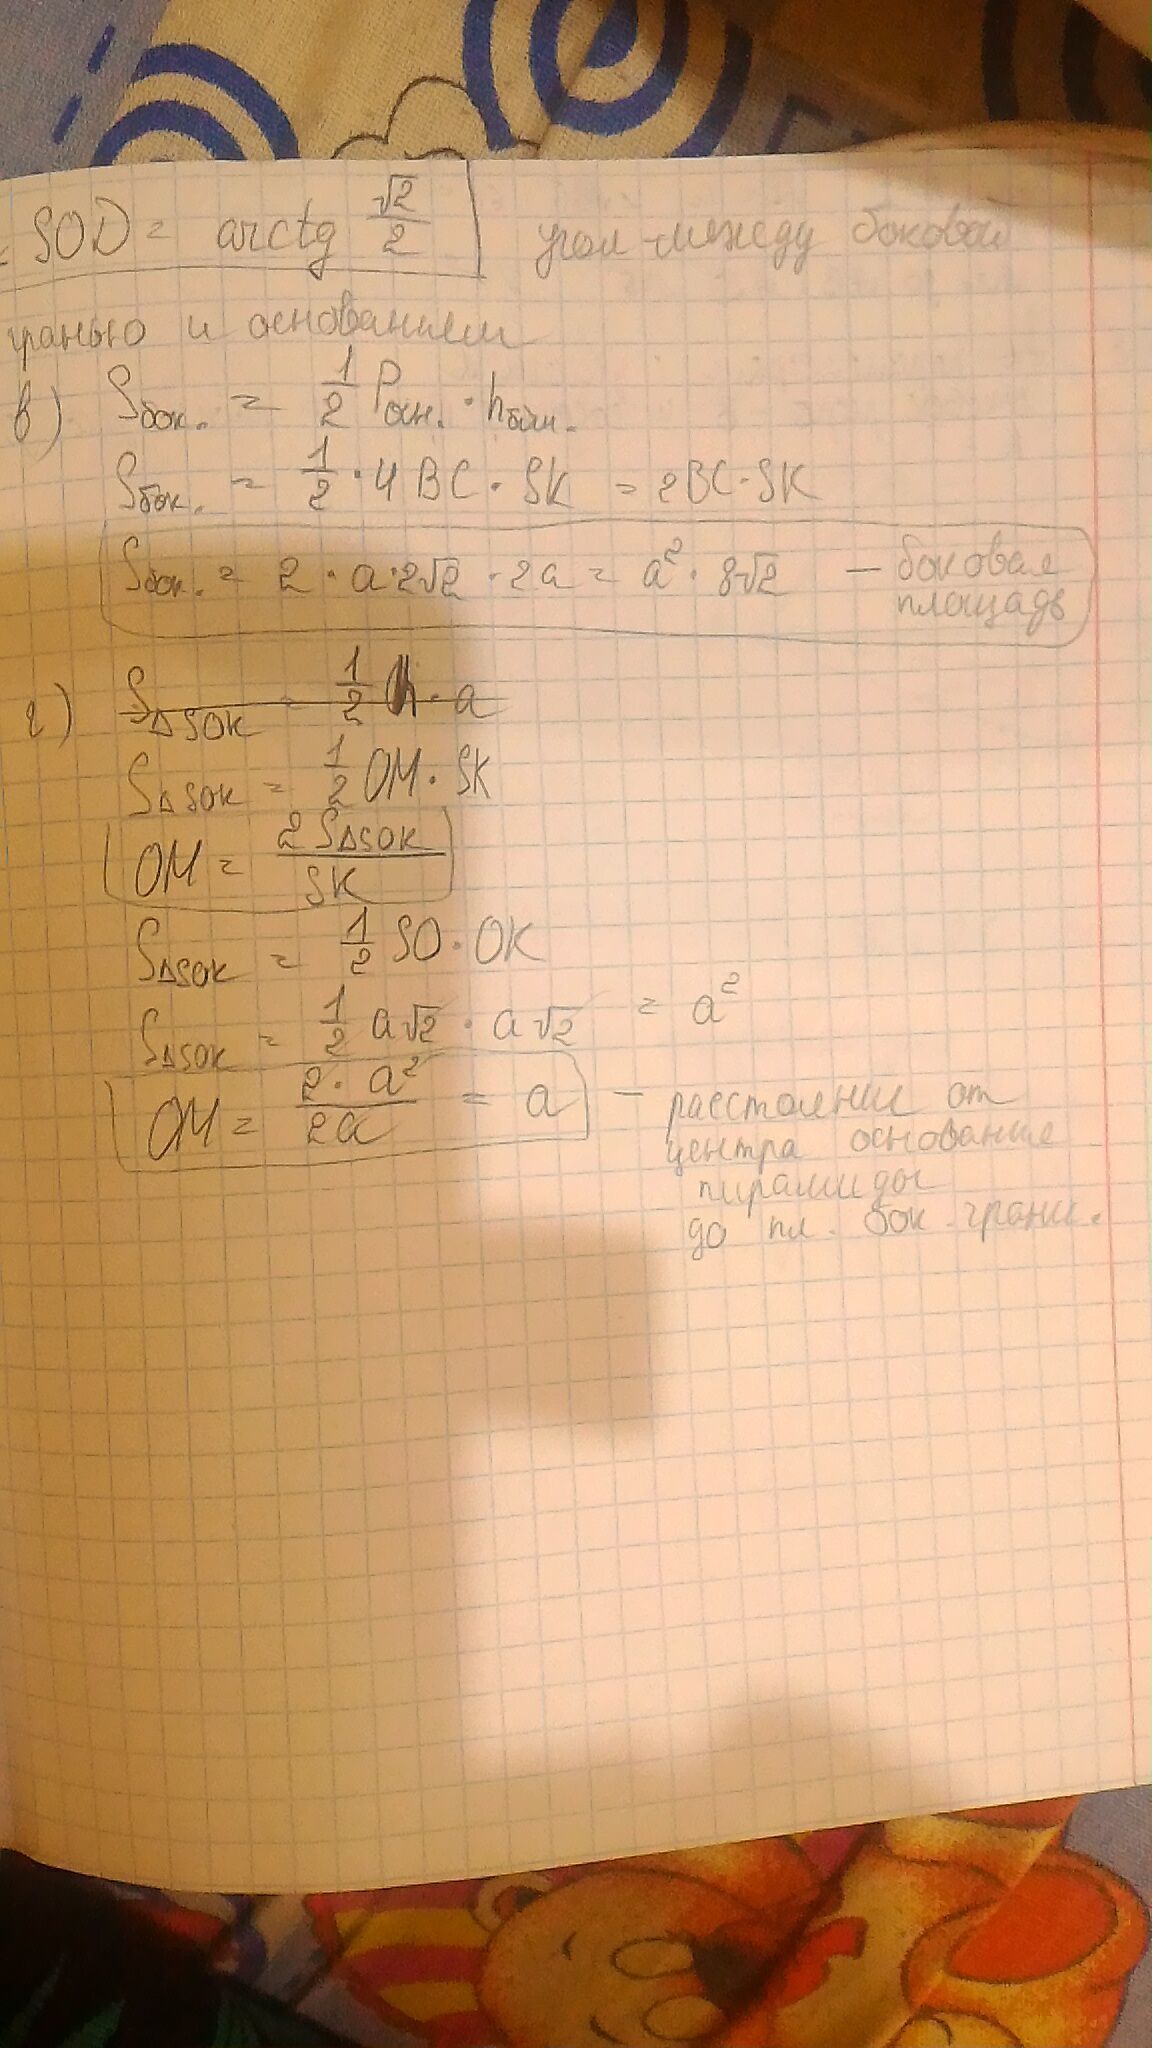 SOD = arctg √2/2 угол между боковой
гранью и основанием
в) Sбок. = 1/2 Pосн. · hбок.
Sбок. = 1/2 · 4BC · SK = 2BC·SK
Sбок. = 2 · a·2√2 · 2a = a² · 8√2 — боковая
площадь
г) S△SOK = 1/2 · a
S△SOK = 1/2 OM · SK
OM = 2S△SOK/SK
S△SOK = 1/2 SO · OK
S△SOK = 1/2 a√2 · a√2 = a²
OM = 2·a²/2a = a — расстояние от
центра основания
пирамиды
до пл. бок. грани.